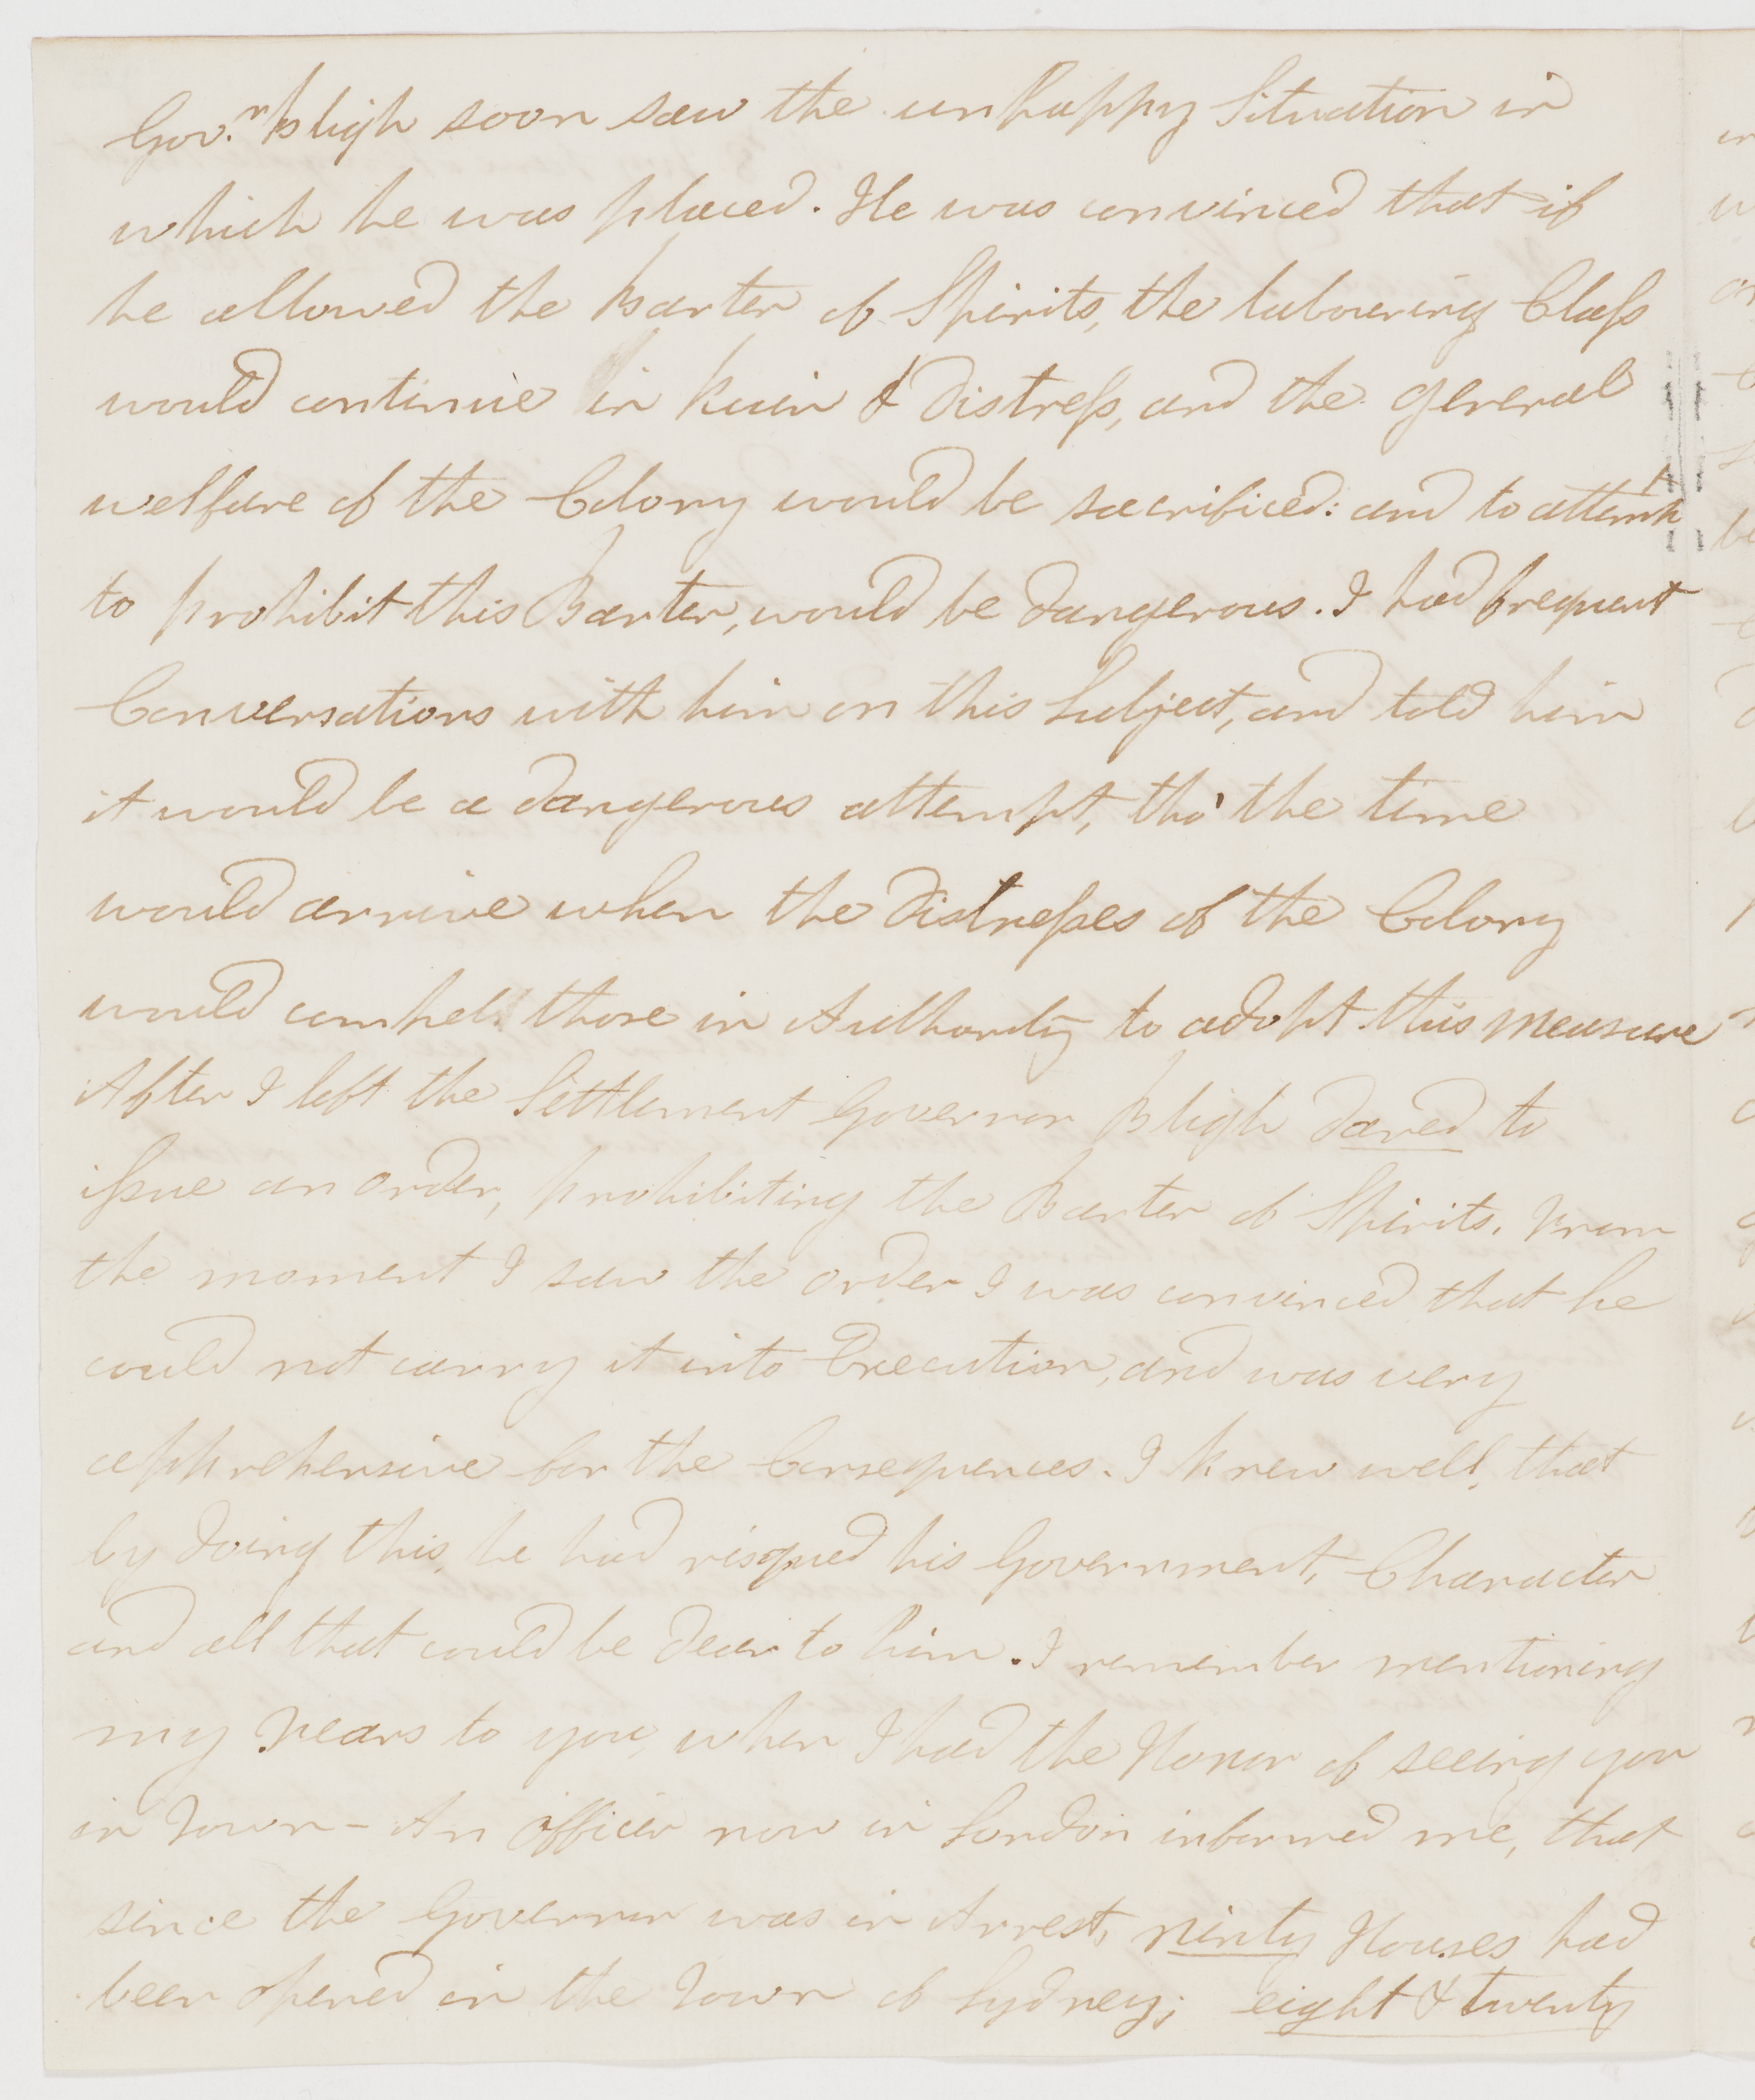 Gov.r Bligh soon saw the unhappy Situation in
which he was placed. He was convinced that if
he allowed the Barter of Spirits, the labouring Class
would continue in Ruin & Distress, and the general
welfare of the Colony would be sacrificed: and to attempt
to prohibit this Barter, would be dangerous. I had frequent
Conversations with him on this Subject, and told him
it would be a dangerous attempt, tho' the time
would arrive when the Distresses of the Colony
would compel those in Authority to adopt this measure
After I left the Settlement Governor Bligh dared to
issue an order, prohibiting the Barter of Spirits. From
the moment I saw the order I was convinced that he
could not carry it into Execution, and was very
apprehensive for the Consequences. I knew well, that
by doing this, he had risqued his Government, Character
and all that could be dear to him. I remember mentioning
my Fears to you, when I had the Honor of seeing you
in Town - An officer now in London informed me, that
since the Governor was in Arrest, ninty Houses had
been opened in the Town of Sydney; eight & twenty